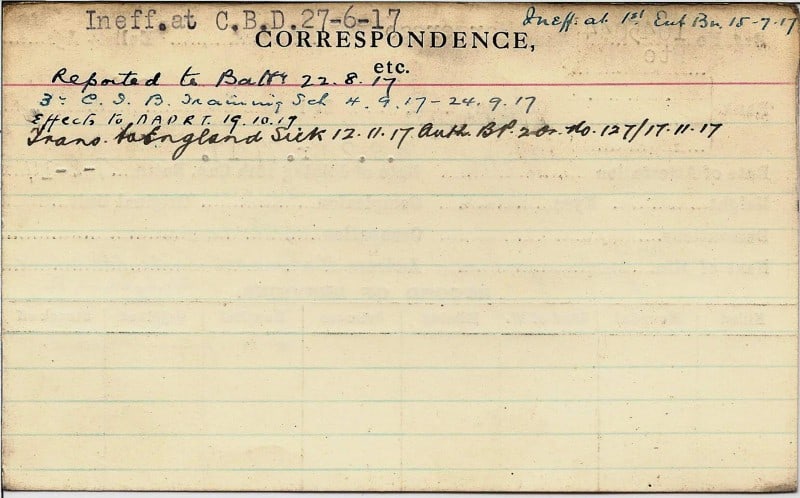 Ineff. at C.B.D. 27-6-17
Ineff. at 1st Ent Bn. 15-7-17
CORRESPONDENCE,
etc.
Reported to Battn 22.8.17
3rd C.I.B. Training Sch 4.9.17-24.9.17
Effects to DAPRT. 19.10.17
Trans. to England Sick 12.11.17 Auth BP. 2 Or. No. 127/17.11.17